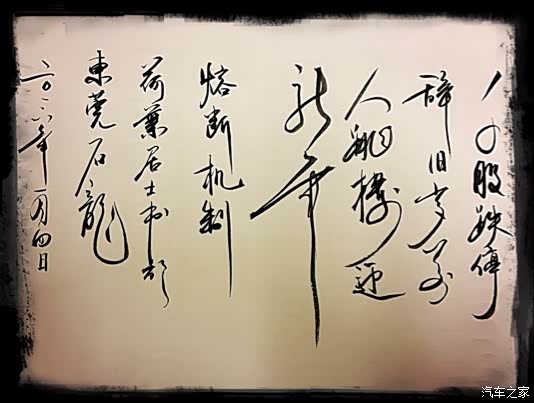 股跌停
辞旧岁万
人跳楼迎
新年
熔断机制
荷葉居士书於
東莞石龍
二〇一六年一月四日
汽车之家